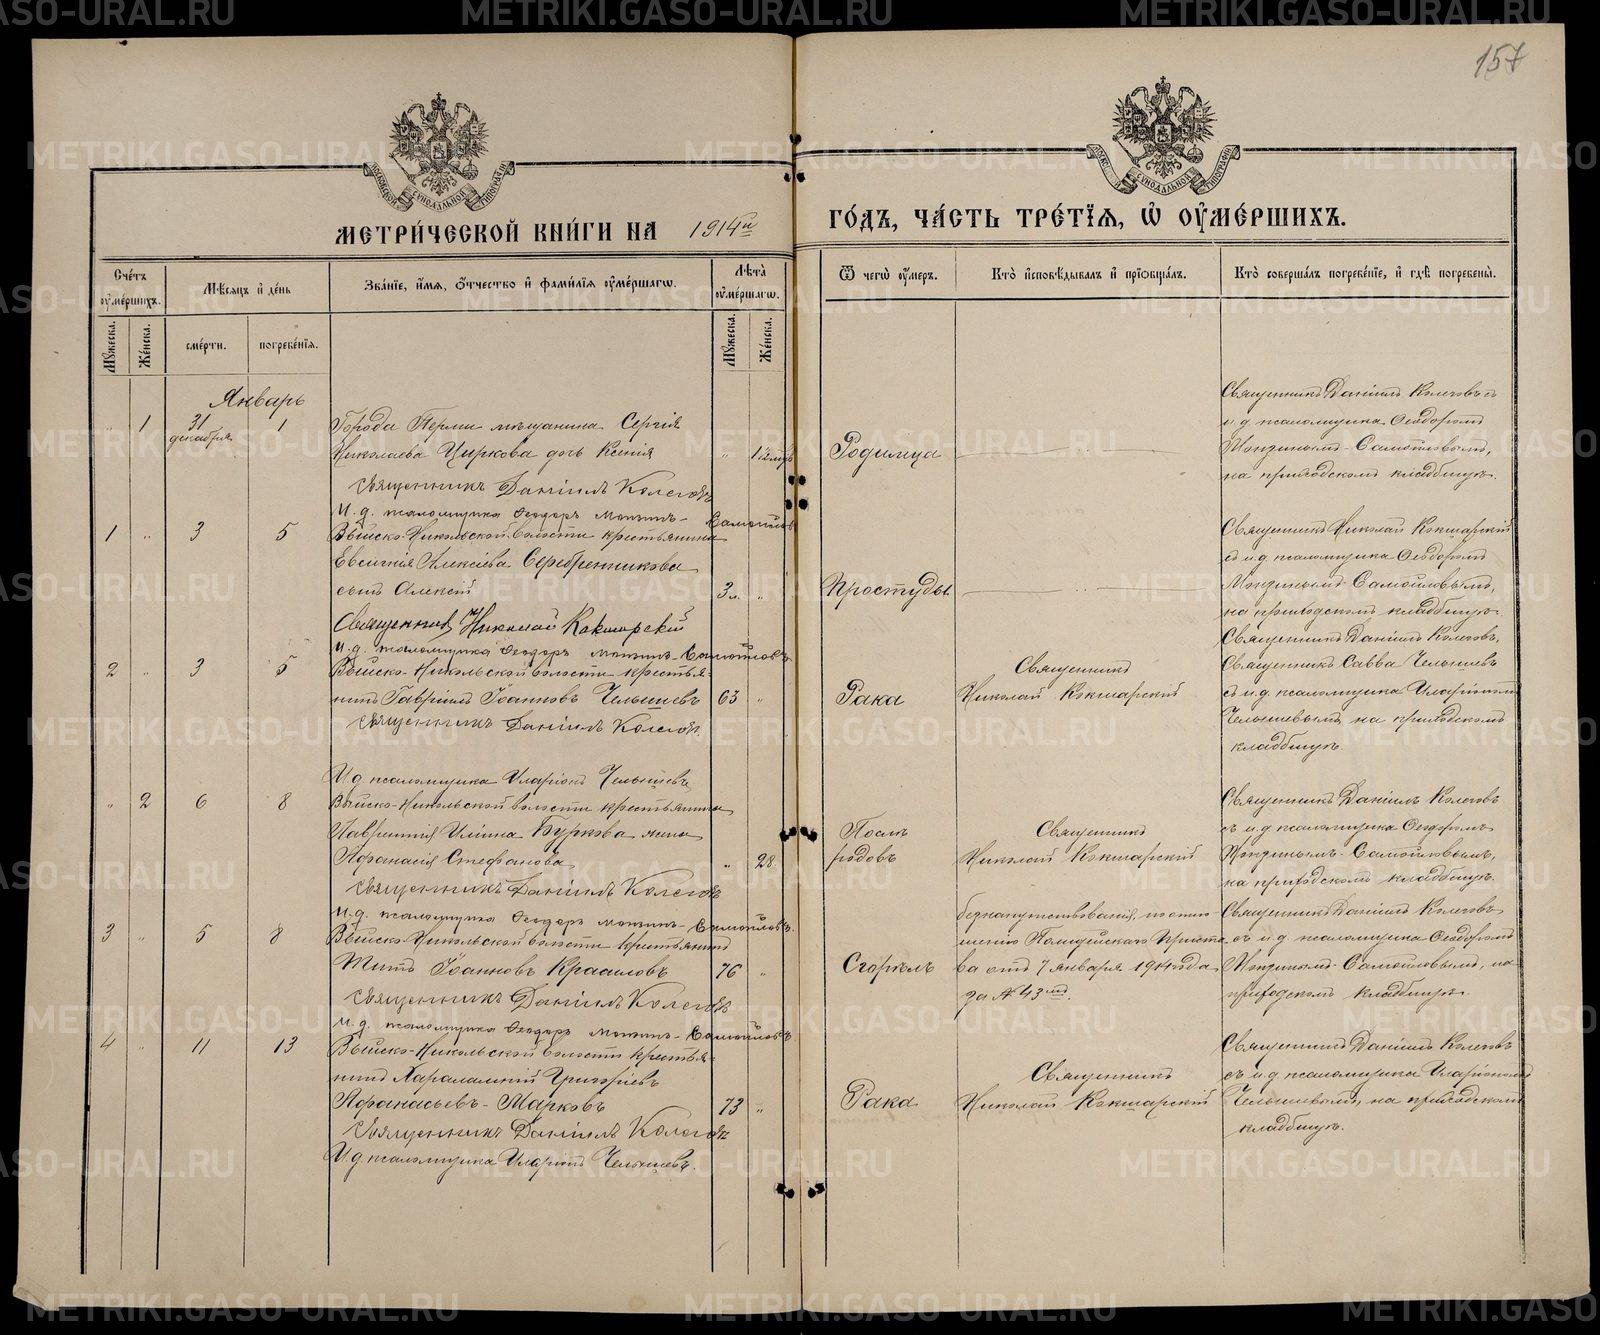 157
МЕТРИ́ЧЕСКОЙ КНИ́ГИ НА 1914й ГО́ДЪ, ЧА́СТЬ ТРЕ́ТЇѦ, Ѡ҆ ОУ҆МЕ́РШИХЪ.
Сче́тъ оу҆ме́ршихъ.
Мѣ́сѧцъ и҆ де́нь
Зва́нїе, и҆́мѧ, ѻ҆́тчество и҆ фами́лїѧ оу҆ме́ршагѡ.
Лѣ́та оу҆ме́ршагѡ.
Ѿ чегѡ̀ оу҆́меръ.
Кто̀ и҆сповѣ́дывалъ и҆ прїѡбща́лъ.
Кто̀ соверша́лъ погребе́нїе, и҆ гдѣ̀ погребены̀.
Мꙋ́жеска.
Же́нска.
сме́рти.
погребе́нїѧ.
Мꙋ́жеска.
Же́нска.
Январь
„ 1 31 декабря 1
Города Перми мѣщанина Сергія
Николаева Циркова дочь Ксенія
Родимца
Священникъ Даніилъ Колеговъ съ
и.д. псаломщика Ѳеодоромъ
Мокинымъ-Самойловымъ,
на приходскомъ кладбищѣ.
Священникъ Даніилъ Колеговъ
И.д. псаломщика Ѳеодоръ Мокинъ-Самойловъ
1 „ 3 5
Выйско-Никольской волости крестьянина
Евсигнія Алексіева Серебренникова
сынъ Алексій
3 „
Простуды
Священникъ Николай Кокшарскій
съ и.д. псаломщика Ѳеодоромъ
Мокинымъ-Самойловымъ,
на приходскомъ кладбищѣ.
Священникъ Николай Кокшарскій
И.д. псаломщика Ѳеодоръ Мокинъ-Самойловъ
2 „ 3 5
Выйско-Никольской волости крестья-
нинъ Гавріилъ Іоанновъ Челышевъ
63 „
Рака
Священникъ
Николай Кокшарскій
Священникъ Даніилъ Колеговъ,
Священникъ Савва Челышевъ
съ и.д. псаломщика Иларіономъ
Челышевымъ, на приходскомъ
кладбищѣ.
Священникъ Даніилъ Колеговъ.
И.д. псаломщика Иларіонъ Челышевъ
„ 2 6 8
Выйско-Никольской волости крестьянина
Лаврентія Иліина Буркова жена
Афанасія Стефанова
„ 28
Послѣ
родовъ
Священникъ
Николай Кокшарскій
Священникъ Даніилъ Колеговъ
съ и.д. псаломщика Ѳеодоромъ
Мокинымъ-Самойловымъ,
на приходскомъ кладбищѣ.
Священникъ Даніилъ Колеговъ
И.д. псаломщика Ѳеодоръ Мокинъ-Самойловъ.
3 „ 5 8
Выйско-Никольской волости крестьянинъ
Титъ Іоанновъ Красиловъ
76 „
Сгорѣлъ
безнапутствованія, по отно-
шенію Полицейскаго Приста-
ва отъ 7 января 1914 года
за № 43мъ.
Священникъ Даніилъ Колеговъ
съ и.д. псаломщика Ѳеодоромъ
Мокинымъ-Самойловымъ, на
приходскомъ кладбищѣ.
Священникъ Даніилъ Колеговъ
И.д. псаломщика Ѳеодоръ Мокинъ-Самойловъ
4 „ 11 13
Выйско-Никольской волости крестья-
нинъ Харалампій Григоріевъ
Афанасьевъ-Марковъ
73 „
Рака
Священникъ
Николай Кокшарскій
Священникъ Даніилъ Колеговъ
съ и.д. псаломщика Иларіономъ
Челышевымъ, на приходскомъ
кладбищѣ.
Священникъ Даніилъ Колеговъ
И.д. псаломщика Иларіонъ Челышевъ.
METRIKI.GASO-URAL.RU